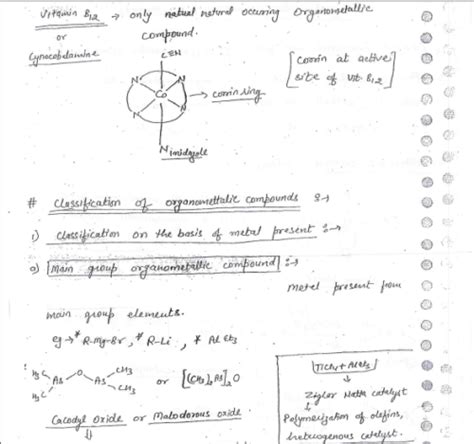 Vitamin B12 → only natural natural occuring Organometallic
or compound.
Cynocobalamine
CEN
N N
Co → corrin ring
N N
N imidazole
[corrin at active
site of vit. B12]
# Classification of organometallic compounds :→
1) Classification on the basis of metal present :→
a) Main group organometallic compound :→
metal present from
main group elements.
eg → * R-Mg-Br, * R-Li, * Al Et3
H3C CH3
As - O - As or [(CH3)2As]2O
H3C CH3
Cacodyl Oxide or Malodorous oxide
TiCl4 + AlEt3
↓
Ziglar Natta catalyst
↓
Polymerization of olefins,
heterogenous catalyst.